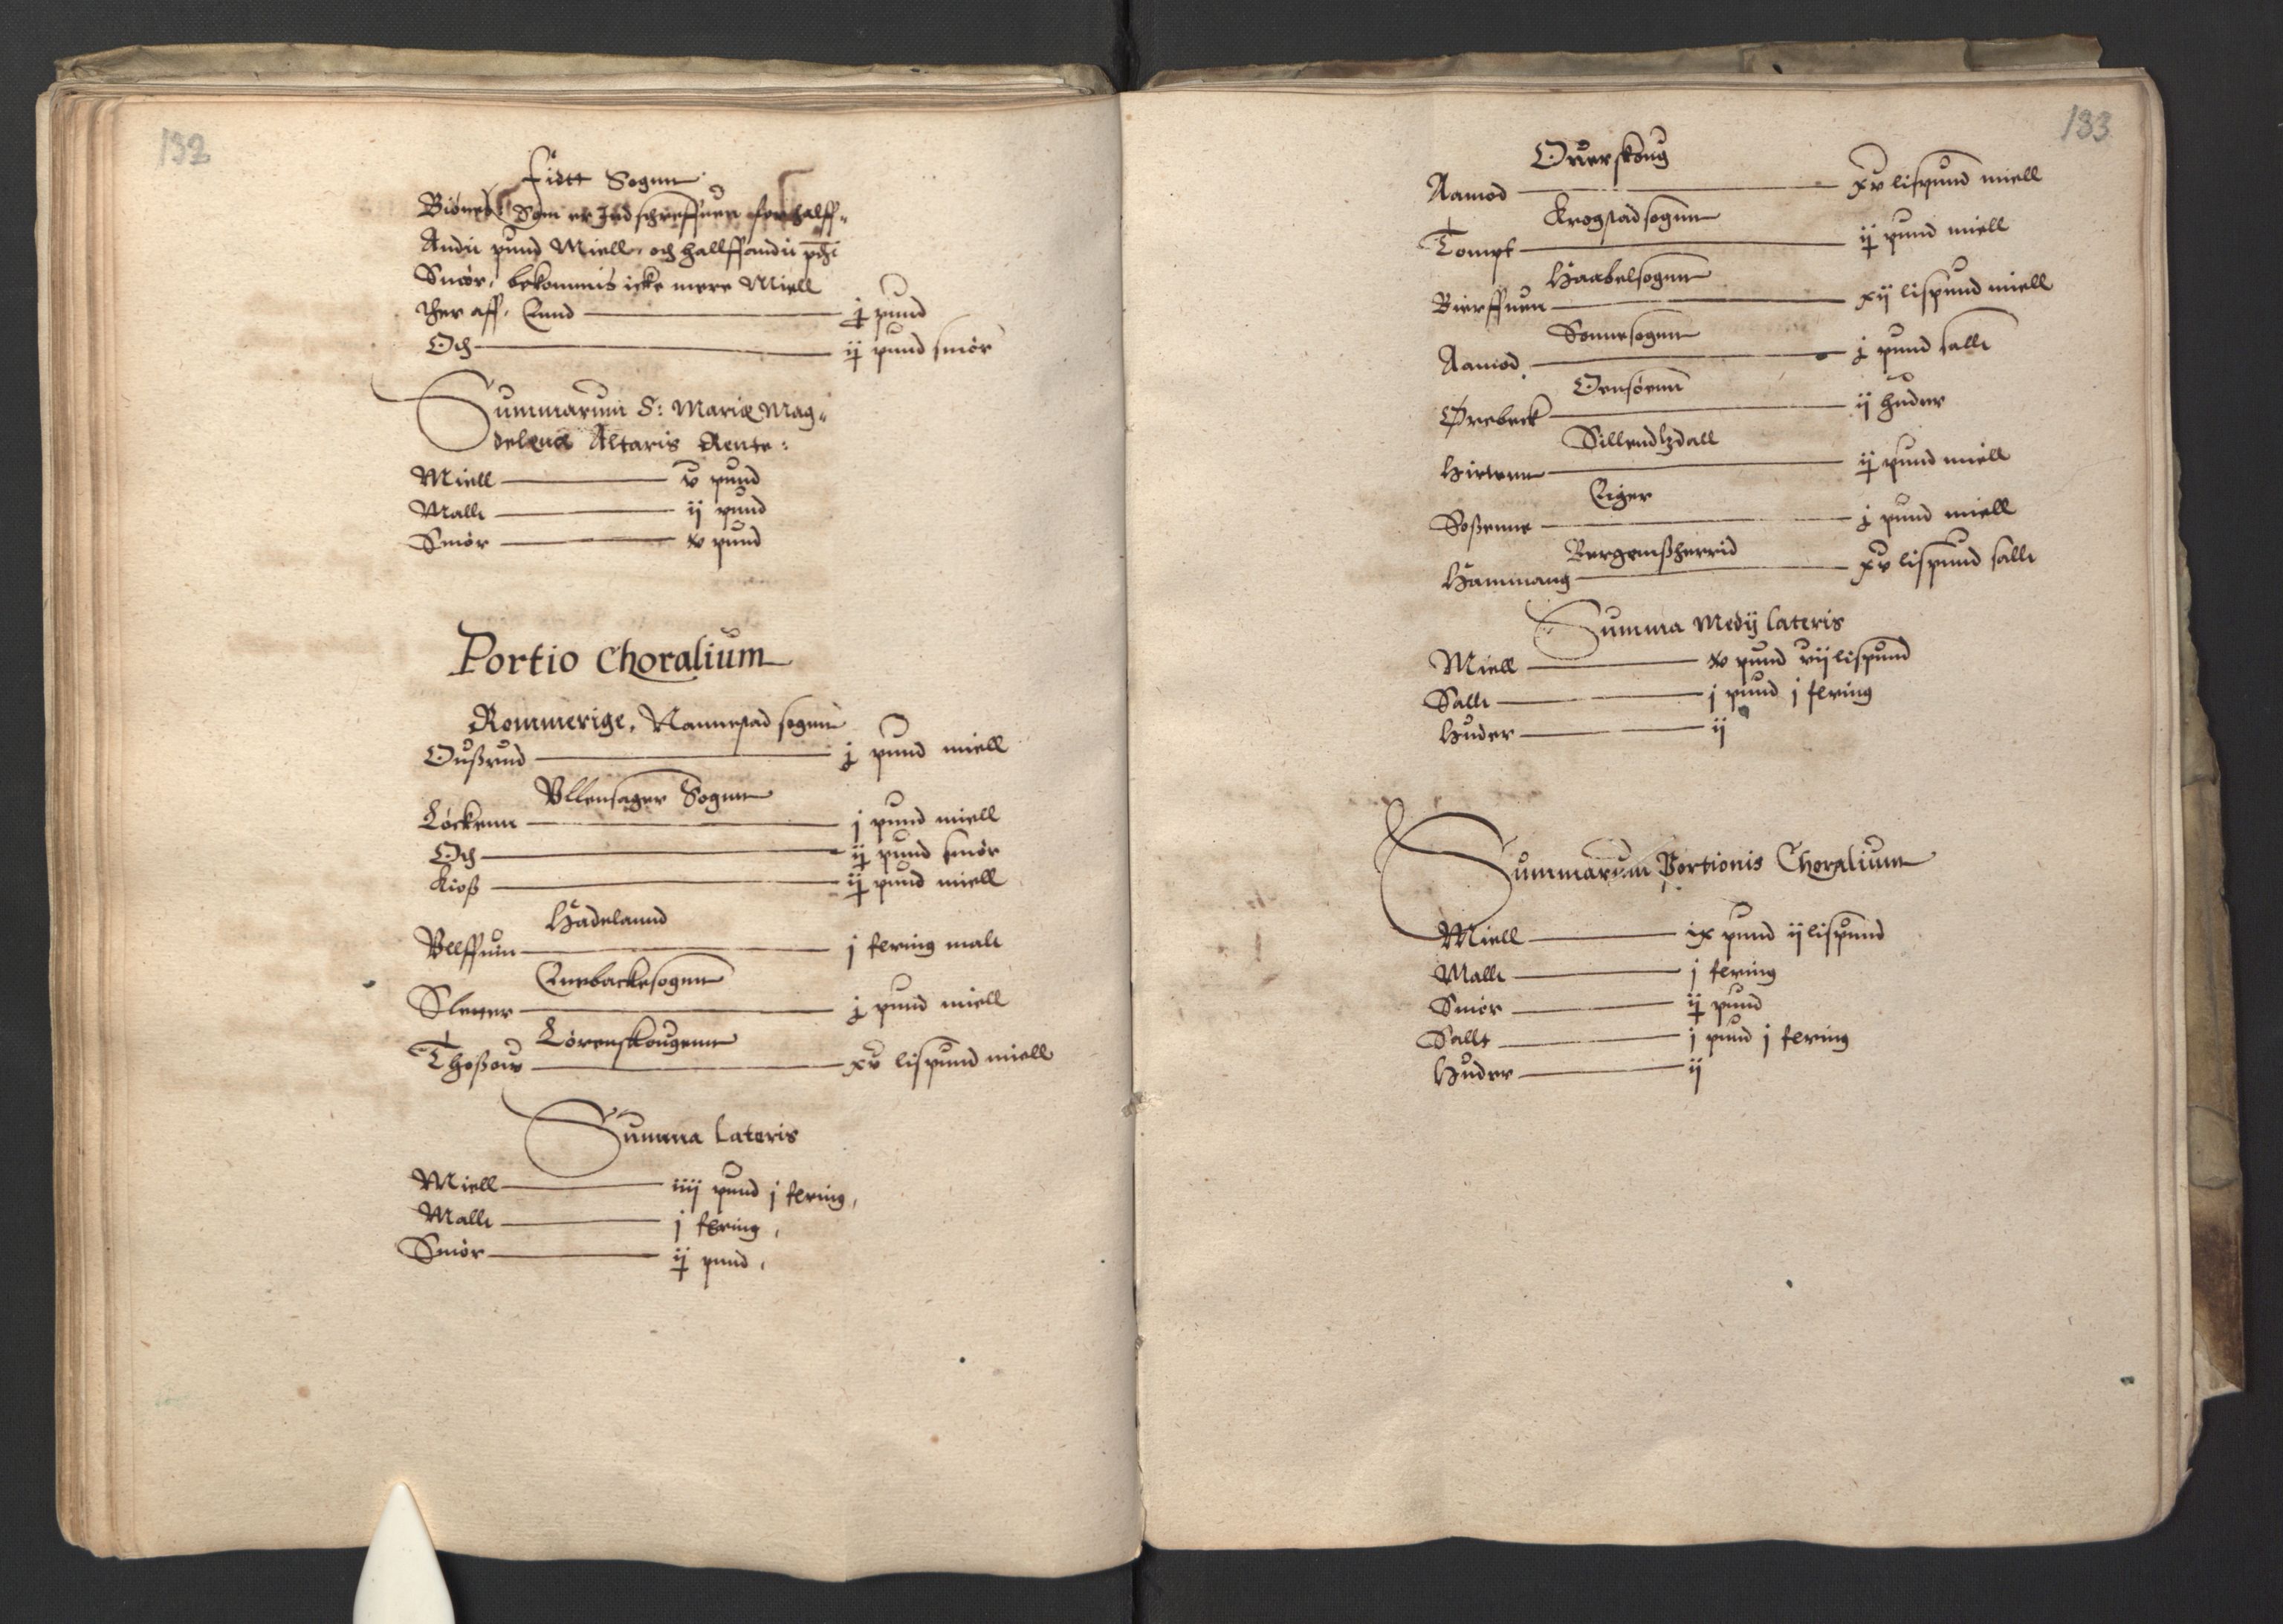 132
Fidtt Sognn
Biönes Som er Indschreffuen for halff-
Andit pund Miell, och hallffandit pdh
Smör, bekommis icke mere Miell
ther aff, End ——— j pund
Och ——— ij pund smör
Summarum S: Mariæ Mag-
delenæ Altaris Rente:
Miell ——— v pund
Mallt ——— ij pund
Smör ——— xv pund
Portio Choralium
Rommerige, Nannestad sognn
Oußrud ——— j pund miell
Vllensager Sognn
Löckenn ——— j pund miell
Och ——— ij pund smör
Kioß ——— ij pund miell
Hadelannd
Vllffuin ——— j fering malt
Enebackesognn
Sletter ——— j pund miell
Lörenskougenn
Thoßow ——— xv lispund miell
Summa Lateris
Miell ——— iiij pund j fering,
Mallt ——— j fering,
Smör ——— ij pund,
133
Ouerskoug
Aamod ——— xv lispund miell
Krogstadsognn
Tompt ——— ij pund miell
Haabelsognn
Bierffuen ——— xij lispund miell
Sonnesognn
Aamod ——— j pund sallt
Ørebeck ——— ij huder
Sillendtzdall
Hiertenn ——— ij pund miell
Eiger
Soßenne ——— j pund miell
Bergemßherrid
Hammang ——— xv lispund sallt
Summa Medij Lateris
Miell ——— xv pund vij lispund
Sallt ——— j pund j fering
Huder ——— ij
Summarum Portionis Choralium
Miell ——— ix pund ij lispund
Mallt ——— j fering
Smör ——— ij pund
Sallt ——— j pund j fering
Huder ——— ij